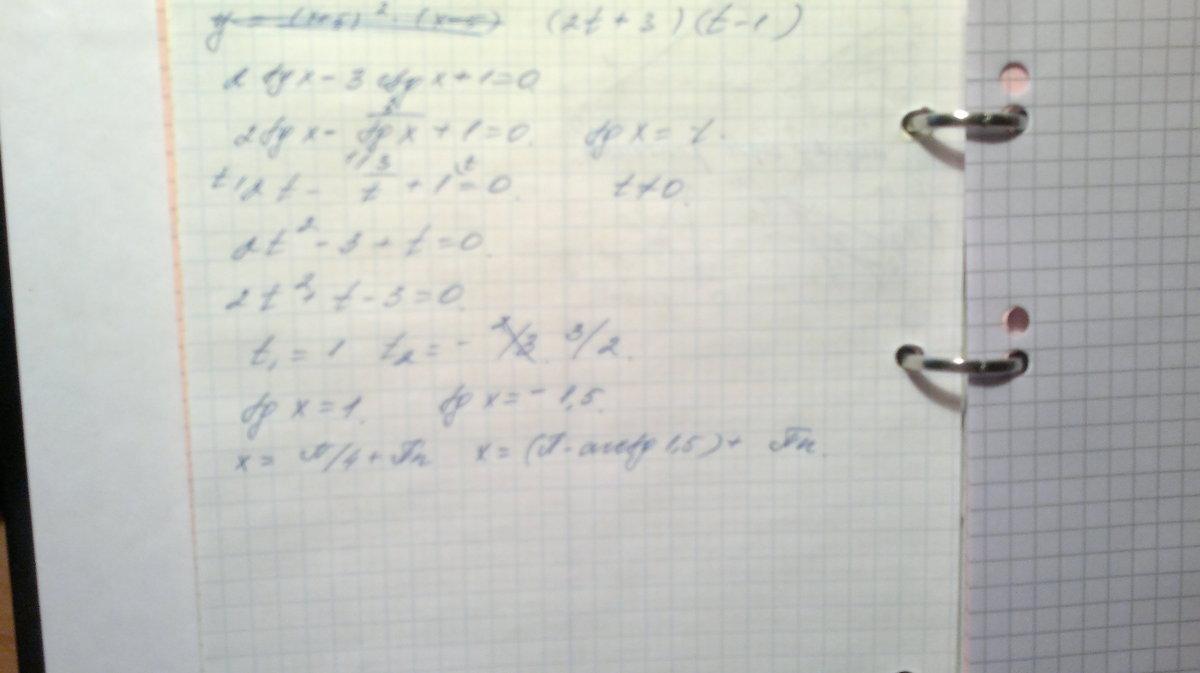 (2t + 3)(t - 1)
2 tg x - 3 ctg x + 1 = 0
2 tg x - 3/tg x + 1 = 0. tg x = t.
2t - 3/t + 1 = 0. t ≠ 0.
2t² - 3 + t = 0.
2t² + t - 3 = 0.
t₁ = 1 t₂ = - 3/2.
tg x = 1. tg x = - 1,5.
x = π/4 + πn x = (π - arctg 1,5) + πn.